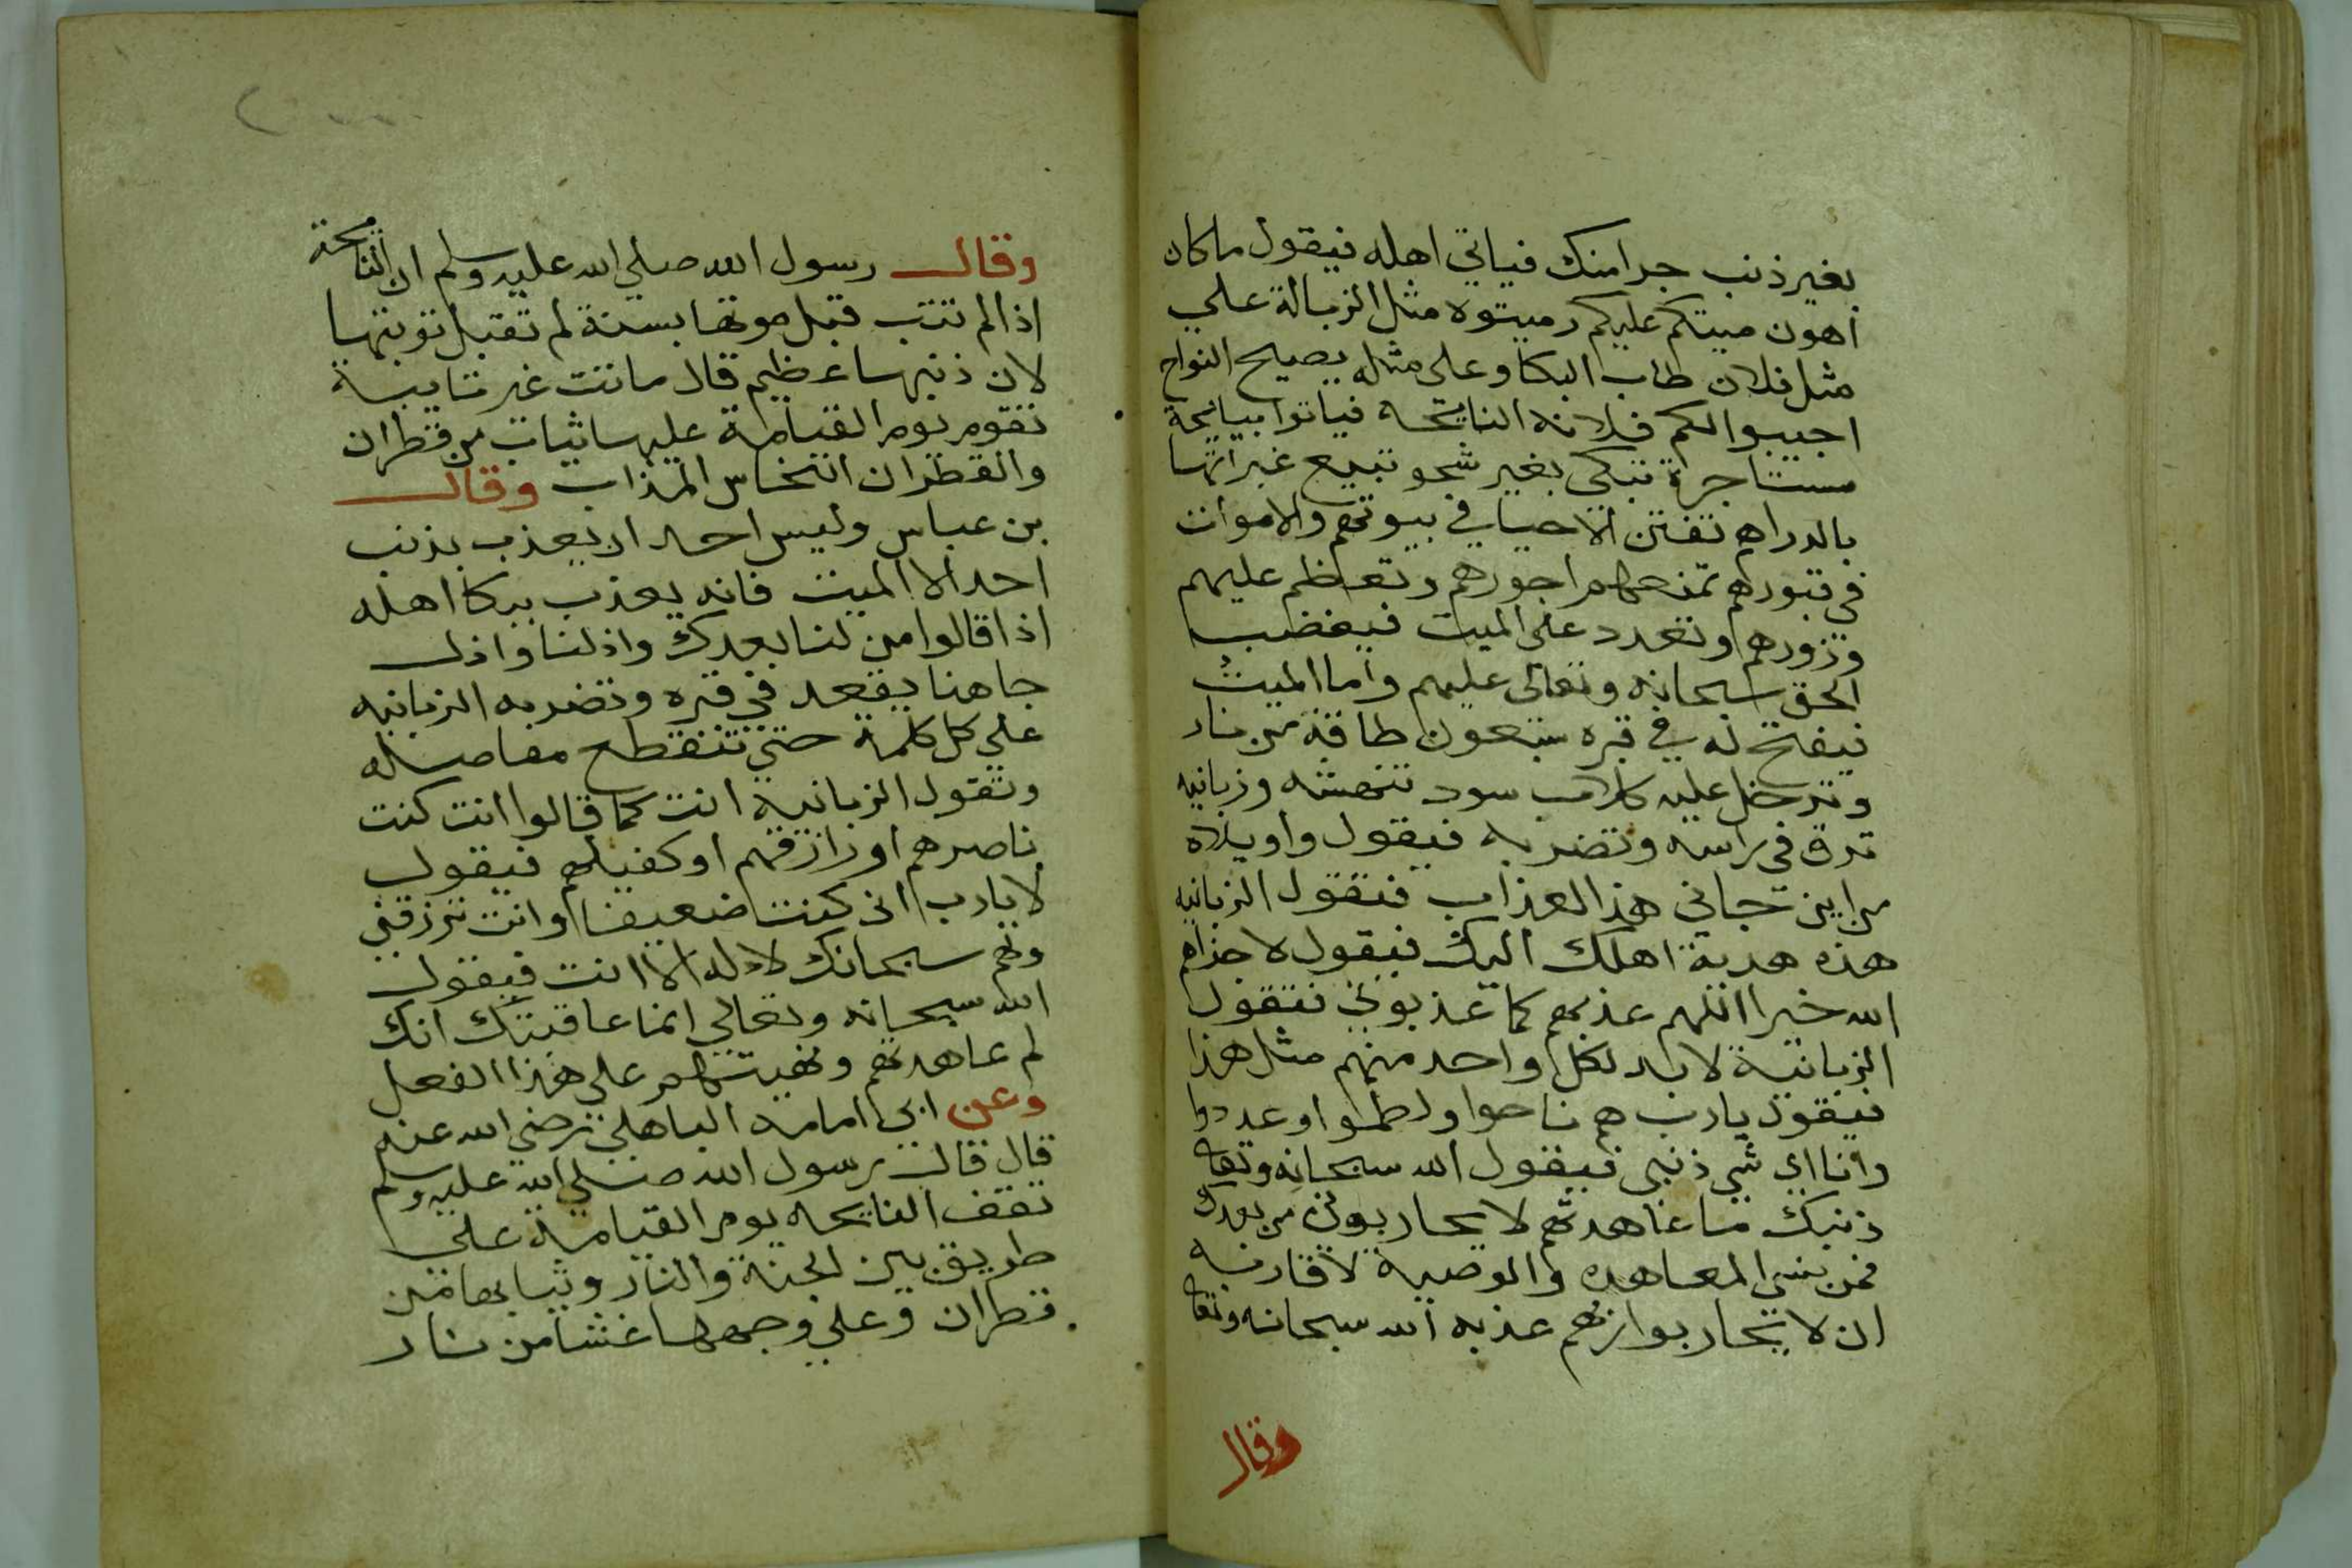 بغير ذنب جرا منك فياتي اهله فيقول ما كان
اهون ميتكم عليكم رميتوه مثل الزبالة علي
مثل فلان طاب البكا وعلى مثله يصيح النواح
اجيبوا لكم فلانه النايحه فياتوا بنايحة
مستاجرة تبكى بغير شجو تبيع عبراتها
بالدراهم تفتن الاحيا في بيوتهم والاموات
في قبورهم تمنعهم اجورهم وتعظم عليهم
وزورهم وتعدد على الميت فيغضب
الحق سبحانه وتعالى عليهم واما الميت
فيفتح له في قبره سبعون طاقة من نار
وتدخل عليه كلاب سود تنهشه وزبانيه
تدق في راسه وتضربه فيقول واويلاه
من اين جاني هذا العذاب فتقول الزبانيه
هذه هدية اهلك اليك فيقول لا جزاهم
الله خيرا اللهم عذبهم كما عذبوني فتقول
الزبانية لابد لكل واحد منهم مثل هذا
فيقول يارب هم ناحوا ولطموا وعددوا
وانا اي شي ذنبي فيقول الله سبحانه وتعا
ذنبك ما عاهدتهم لا يحاربوني من بعدك
فمن نسى المعاهده والوصية لاقاربه
ان لا يحاربوا ربهم عذبه الله سبحانه وتعا
وقال
وقال رسول الله صلي الله عليه وسلم ان النايحة
اذا لم تتب قبل موتها بسنة لم تقبل توبتها
لان ذنبها عظيم قال ماتت غير تايبة
تقوم يوم القيامة عليها ثياب من قطران
والقطران النحاس المذاب وقال
بن عباس وليس احد ان يعذب بذنب
احد الا الميت فانه يعذب ببكا اهله
اذا قالوا من لنا بعدك واذلنا واذل
جاهنا يقعد في قبره وتضربه الزبانيه
علي كل كلمة حتي تتقطع مفاصله
وتقول الزبانية انت كما قالوا انت كنت
ناصرهم او رازقهم او كفيلهم فيقول
لا يارب اني كنت ضعيفا وانت ترزقني
وهم سبحانك لا اله الا انت فيقول
الله سبحانه وتعالي انما عاقبتك انك
لم عاهدتهم ونهيتهم على هذا الفعل
وعن ابي امامه الباهلي رضي الله عنه
قال قال رسول الله صلي الله عليه وسلم
تقف النايحه يوم القيامة علي
طريق بين الجنة والنار وثيابها من
قطران وعلي وجهها غشا من نار